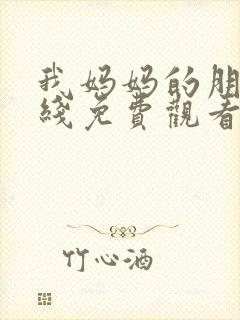 我妈妈的朋
綫免費觀看
竹心酒